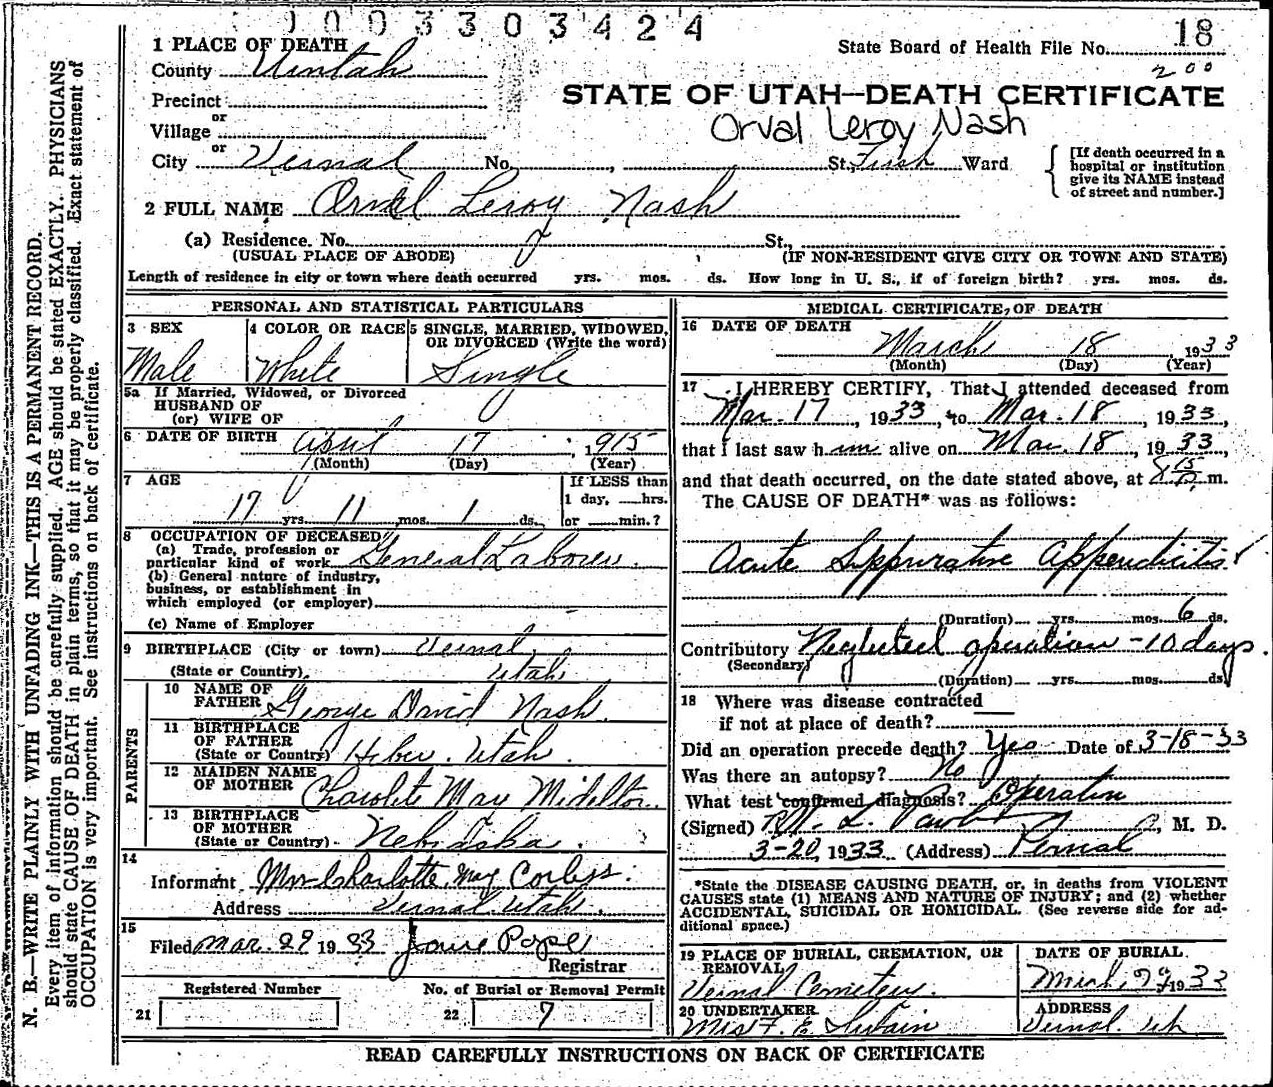 0003303424
18
State Board of Health File No.
200
1 PLACE OF DEATH
County Uintah
STATE OF UTAH—DEATH CERTIFICATE
Precinct
or
Orval Leroy Nash
Village
or
City Vernal No. , St., Ward
[If death occurred in a
hospital or institution
give its NAME instead
of street and number.]
2 FULL NAME Orval Leroy Nash
(a) Residence. No. St.,
(USUAL PLACE OF ABODE) (IF NON-RESIDENT GIVE CITY OR TOWN AND STATE)
Length of residence in city or town where death occurred yrs. mos. ds. How long in U. S., if of foreign birth? yrs. mos. ds.
PERSONAL AND STATISTICAL PARTICULARS
3 SEX
Male
4 COLOR OR RACE
White
5 SINGLE, MARRIED, WIDOWED,
OR DIVORCED (Write the word)
Single
5a If Married, Widowed, or Divorced
HUSBAND OF
(or) WIFE OF
6 DATE OF BIRTH April 17, 1915
(Month) (Day) (Year)
7 AGE
17 yrs. 11 mos. 1 ds.
If LESS than
1 day, hrs.
or min.?
8 OCCUPATION OF DECEASED
(a) Trade, profession or
particular kind of work General Laborer.
(b) General nature of industry,
business, or establishment in
which employed (or employer)
(c) Name of Employer
9 BIRTHPLACE (City or town) Vernal,
(State or Country) Utah
PARENTS
10 NAME OF
FATHER George David Nash.
11 BIRTHPLACE
OF FATHER
(State or Country) Heber. Utah.
12 MAIDEN NAME
OF MOTHER Charolete May Midelton
13 BIRTHPLACE
OF MOTHER
(State or Country) Nebraska.
14
Informant Mrs Charlotte May Corliss.
Address Vernal Utah.
15
Filed Mar. 29 1933 Pope
Registrar
Registered Number
21
No. of Burial or Removal Permit
22 7
MEDICAL CERTIFICATE OF DEATH
16 DATE OF DEATH
March 18 1933
(Month) (Day) (Year)
17 I HEREBY CERTIFY, That I attended deceased from
Mar. 17, 1933, to Mar. 18, 1933,
that I last saw him alive on Mar. 18, 1933,
and that death occurred, on the date stated above, at 8 15 m.
The CAUSE OF DEATH* was as follows:
Acute Suppurative Appendicitis
(Duration) yrs. mos. 6 ds.
Contributory Neglected operation - 10 days.
(Secondary)
(Duration) yrs. mos. ds.
18 Where was disease contracted
if not at place of death?
Did an operation precede death? Yes Date of 3-18-33
Was there an autopsy? No
What test confirmed diagnosis? Operation
(Signed) , M. D.
3-20, 1933 (Address) Vernal
*State the DISEASE CAUSING DEATH, or, in deaths from VIOLENT
CAUSES state (1) MEANS AND NATURE OF INJURY; and (2) whether
ACCIDENTAL, SUICIDAL OR HOMICIDAL. (See reverse side for ad-
ditional space.)
19 PLACE OF BURIAL, CREMATION, OR
REMOVAL
Vernal Cemetery.
DATE OF BURIAL
1933
20 UNDERTAKER
F. E.
ADDRESS
Vernal. Ut
READ CAREFULLY INSTRUCTIONS ON BACK OF CERTIFICATE
N. B.—WRITE PLAINLY WITH UNFADING INK—THIS IS A PERMANENT RECORD.
Every item of information should be carefully supplied. AGE should be stated EXACTLY. PHYSICIANS
should state CAUSE OF DEATH in plain terms, so that it may be properly classified. Exact statement of
OCCUPATION is very important. See instructions on back of certificate.